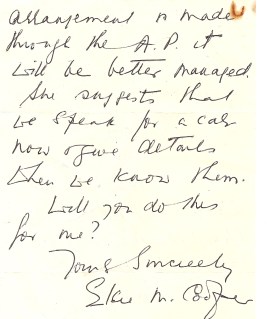 arrangement is made
through the A.P. it
will be better managed.
She suggests that
we speak for a cab
now & give details
when we know them.
Will you do this
for me?
Yours Sincerely
Elsie M.